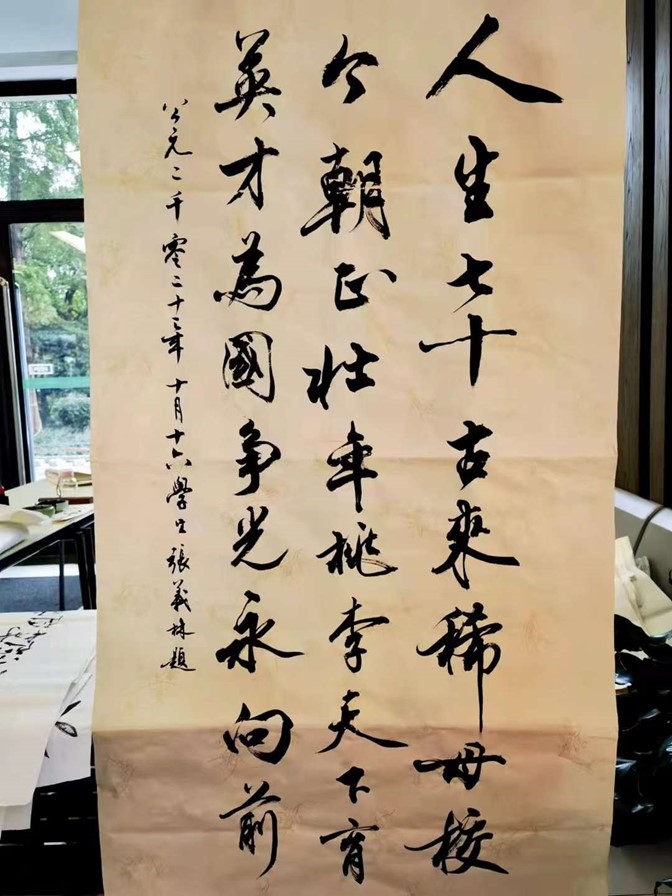 人生七十古來稀母校
今朝正壮年桃李天下育
英才為國争光永向前
公元二千零二十三年十月十六學生張義林題